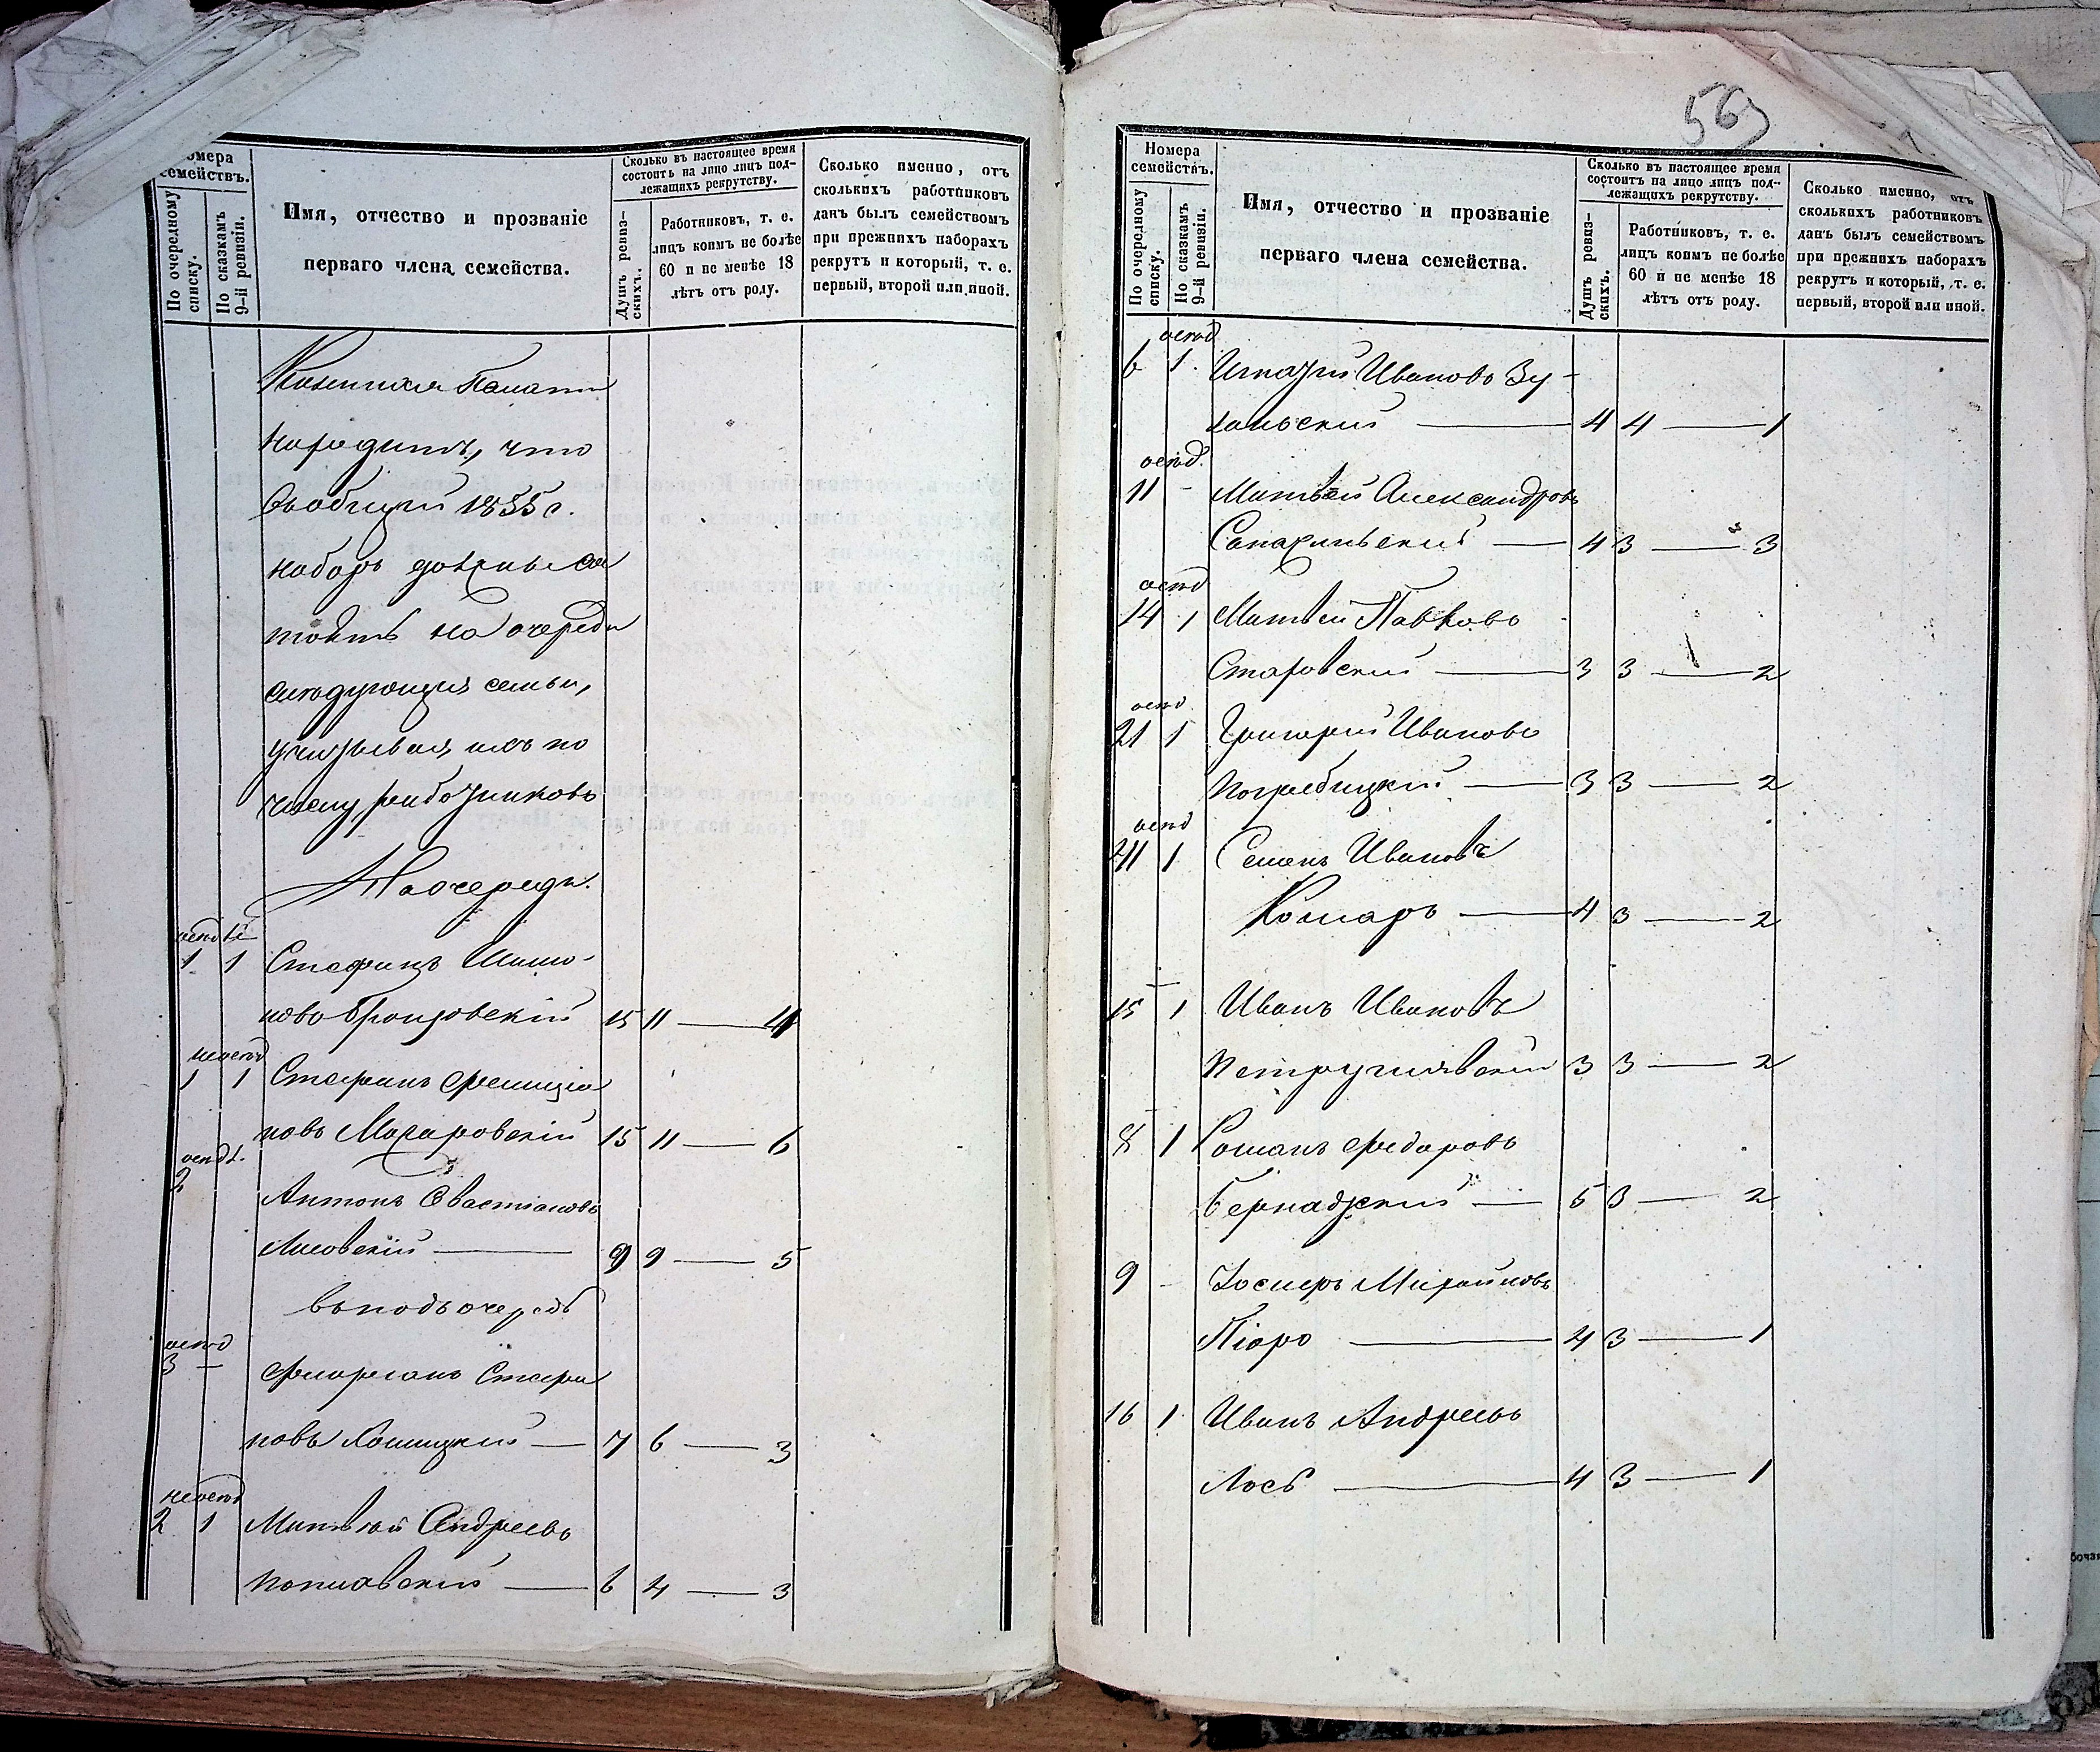 569
Номера
семействъ.
По очередному списку.
По сказкамъ 9-й ревизіи.
Имя, отчество и прозваніе
перваго члена семейства.
Сколько въ настоящее время
состоитъ на лицо лицъ под-
лежащихъ рекрутству.
Душъ ревиз-
скихъ.
Работниковъ, т. е.
лицъ коимъ не болѣе
60 и не менѣе 18
лѣтъ отъ роду.
Сколько именно, отъ
сколькихъ работниковъ
данъ былъ семействомъ
при прежнихъ наборахъ
рекрутъ и который, т. е.
первый, второй или иной.
Казенная Палата
находитъ, что
въобщій 1855 г.
наборъ должны со
тоять на очереди
слѣдующія семьи,
учитывая ихъ по
числу работниковъ
На очереди.
осѣд
1 1 Стефанъ Шимо-
новъ 15 11 — 4
неосѣд
1 1 Стефанъ Фелиціа
новъ Макаровскій 15 11 — 6
осѣд
2
Антонъ Севастіановъ
Лисовскій — 9 9 — 5
въ подъочередь
осѣд
3 — Флоріанъ Стефа
новъ — 7 6 — 3
неосѣд
2 1 Матвѣй Андреевъ
Поплавскій — 6 4 — 3
Номера
семействъ.
По очередному списку.
По сказкамъ 9-й ревизіи.
Имя, отчество и прозваніе
перваго члена семейства.
Сколько въ настоящее время
состоитъ на лицо лицъ под-
лежащихъ рекрутству.
Душъ ревиз-
скихъ.
Работниковъ, т. е.
лицъ коимъ не болѣе
60 и не менѣе 18
лѣтъ отъ роду.
Сколько именно, отъ
сколькихъ работниковъ
данъ былъ семействомъ
при прежнихъ наборахъ
рекрутъ и который, т. е.
первый, второй или иной.
осѣд
6 1. Игнатій Ивановъ
4 4 — 1
осѣд.
11 - Матвѣй Александровъ
— 4 3 — 3
осѣд
14 1 Матвѣй Павловъ
Старовскій — 3 3 — 2
осѣд
21 1 Григорій Ивановъ
Погребицкій — 3 3 — 2
осѣд
1 Семенъ Ивановъ
Комаръ — 4 3 — 2
15 1 Иванъ Ивановъ
3 3 — 2
8 1 Романъ Федоровъ
Бернадзкій — 5 3 — 2
9 — Іосифъ Михайловъ
Піоро — 4 3 — 1
16 1 Иванъ Андреевъ
Лось — 4 3 — 1